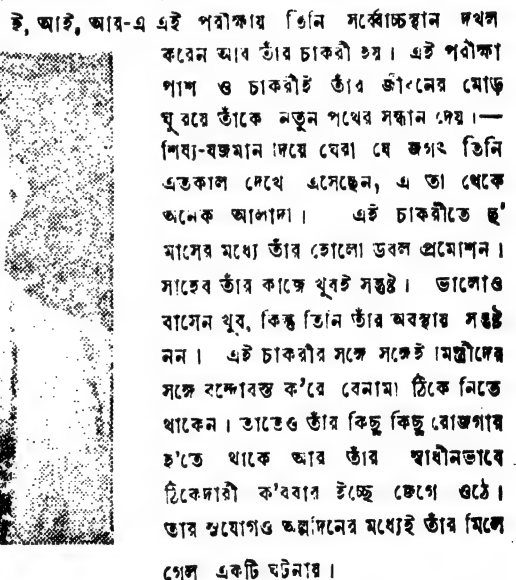 ই, আই, আর-এ এই পরীক্ষায় তিনি সর্ব্বোচ্চস্থান দখল
করেন আর তাঁর চাকরী হয়। এই পরীক্ষা
পাশ ও চাকরীই তাঁর জীবনের মোড়
ঘুরয়ে তাঁকে নতুন পথের সন্ধান দেয়।—
শিষ্য-যজমান দিয়ে ঘেরা যে জগৎ তিনি
এতকাল দেখে এসেছেন, এ তা থেকে
অনেক আলাদা। এই চাকরীতে ছ'
মাসের মধ্যে তাঁর হোলো ডবল প্রমোশন।
সাহেব তাঁর কাজে খুবই সন্তুষ্ট। ভালোও
বাসেন খুব, কিন্তু তিনি তাঁর অবস্থায় সন্তুষ্ট
নন। এই চাকরীর সঙ্গে সঙ্গেই মিস্ত্রীদের
সঙ্গে বন্দোবস্ত ক'রে বেনামা ঠিকে নিতে
থাকেন। তাতেও তাঁর কিছু কিছু রোজগার
হ'তে থাকে আর তাঁর স্বাধীনভাবে
ঠিকেদারী ক'রবার ইচ্ছে জেগে ওঠে।
তার সুযোগও অল্পদিনের মধ্যেই তাঁর মিলে
গেল একটি ঘটনায়।